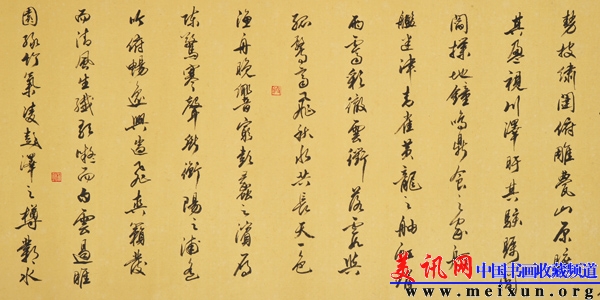 勢披繡闥俯雕甍山原曠
其盈視川澤盱其駭矚閭
閻撲地鐘鳴鼎食之家舸
艦迷津青雀黃龍之舳虹銷
雨霽彩徹雲衢落霞與
孤鶩齊飛秋水共長天一色
漁舟晚響窮彭蠡之濱雁
陣驚寒聲斷衡陽之浦遙
吟俯暢逸興遄飛爽籟發
而清風生纖歌凝而白雲遏睢
園綠竹氣凌彭澤之樽鄴水
美讯网 中国书画收藏频道
www.meixun.org